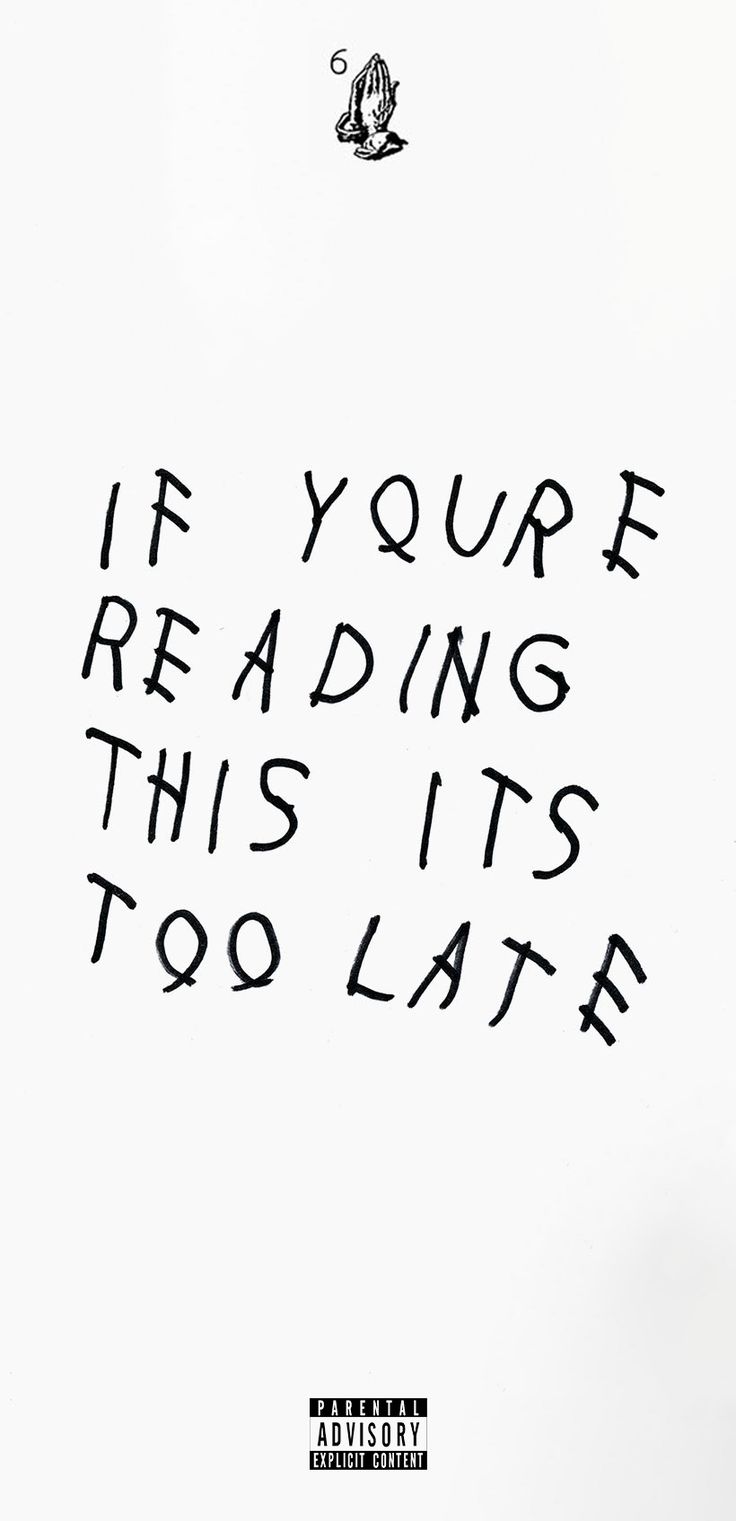 6
IF YOURE
READING
THIS ITS
TOO LATE
PARENTAL
ADVISORY
EXPLICIT CONTENT